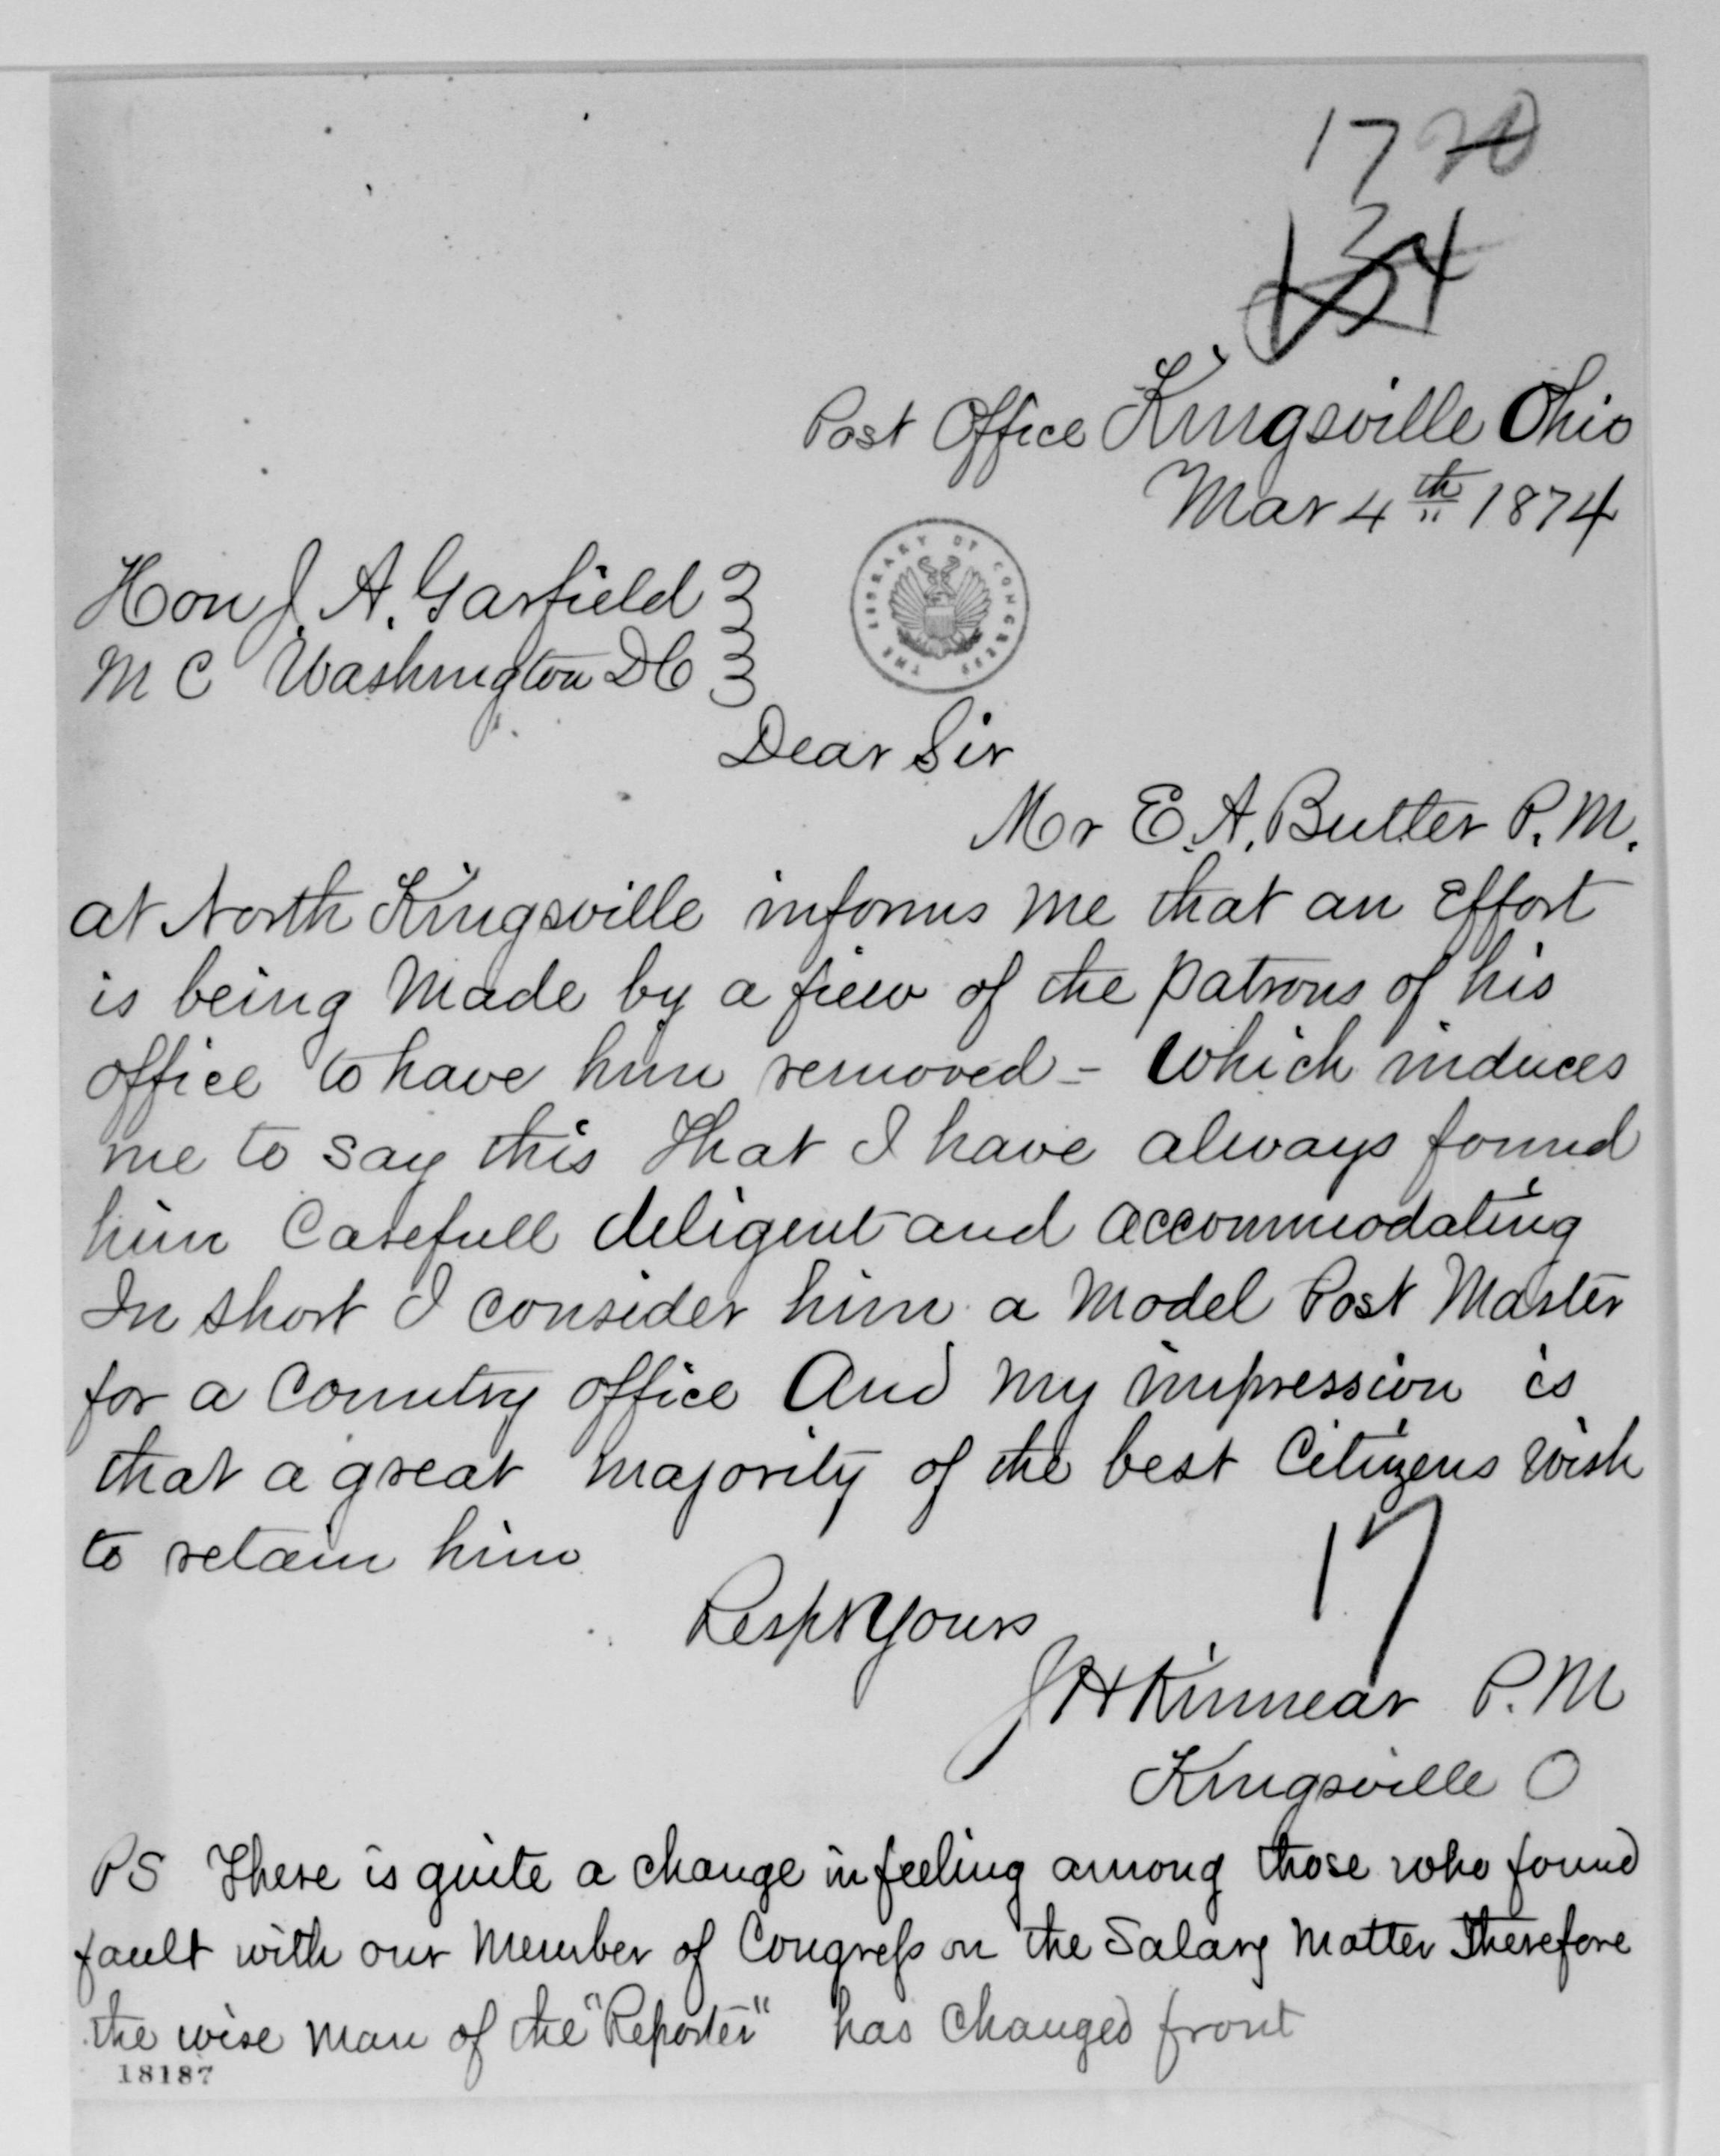 17 20
134
Post Office Kingsville Ohio
Mar 4th 1874
Hon J. A. Garfield
M C Washington DC
THE LIBRARY OF CONGRESS
Dear Sir
Mr E. A. Butler P. M.
at North Kingsville informs me that an Effort
is being Made by a fiew of the patrons of his
office to have him removed - Which induces
me to say this That I have always found
him Carefull deligent and accommodating
In short I consider him a Model Post Master
for a Country office And my impression is
that a great majority of the best Citizens wish
to retain him
17
Respt Yours
J H Kinnear P. M
Kingsville O
PS There is quite a change in feeling among those who found
fault with our Member of Congress on the Salary Matter Therefore
the wise man of the "Reporter" has Changed front
18187